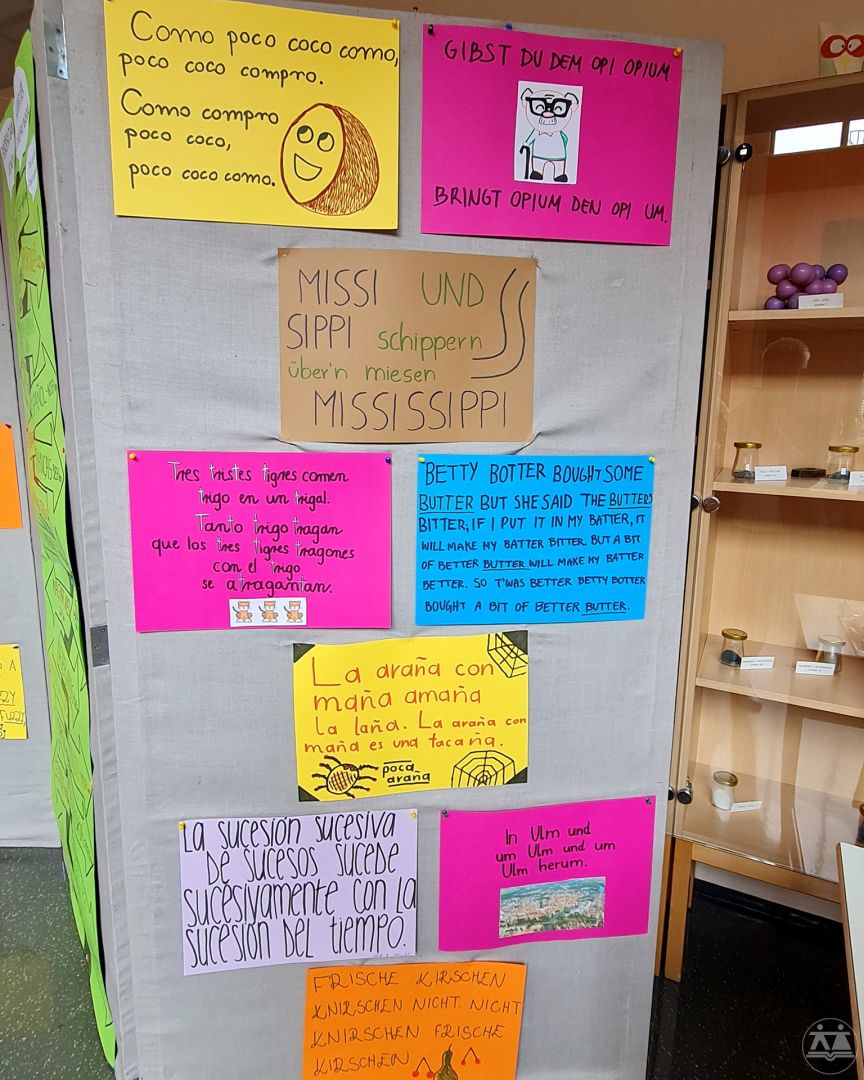 Como poco coco como,
poco coco compro.
Como compro
poco coco,
poco coco como.
GIBST DU DEM OPI OPIUM
BRINGT OPIUM DEN OPI UM.
MISSI UND
SIPPI schippern
über'n miesen
MISSISSIPPI
Tres tristes tigres comen
trigo en un trigal.
Tanto trigo tragan
que los tres tigres tragones
con el trigo
se atragantan.
BETTY BOTTER BOUGHT SOME
BUTTER BUT SHE SAID THE BUTTERS
BITTER; IF I PUT IT IN MY BATTER, IT
WILL MAKE MY BATTER BITTER. BUT A BIT
OF BETTER BUTTER WILL MAKE MY BATTER
BETTER. SO T'WAS BETTER BETTY BOTTER
BOUGHT A BIT OF BETTER BUTTER.
La araña con
maña amaña
la laña. La araña con
maña es una tacaña.
poca
araña
LA SUCESIÓN SUCESIVA
DE SUCESOS SUCEDE
SUCESIVAMENTE CON LA
SUCESIÓN DEL TIEMPO.
In Ulm und
um Ulm und um
Ulm herum.
FRISCHE KIRSCHEN
KNIRSCHEN NICHT. NICHT
KNIRSCHEN FRISCHE
KIRSCHEN